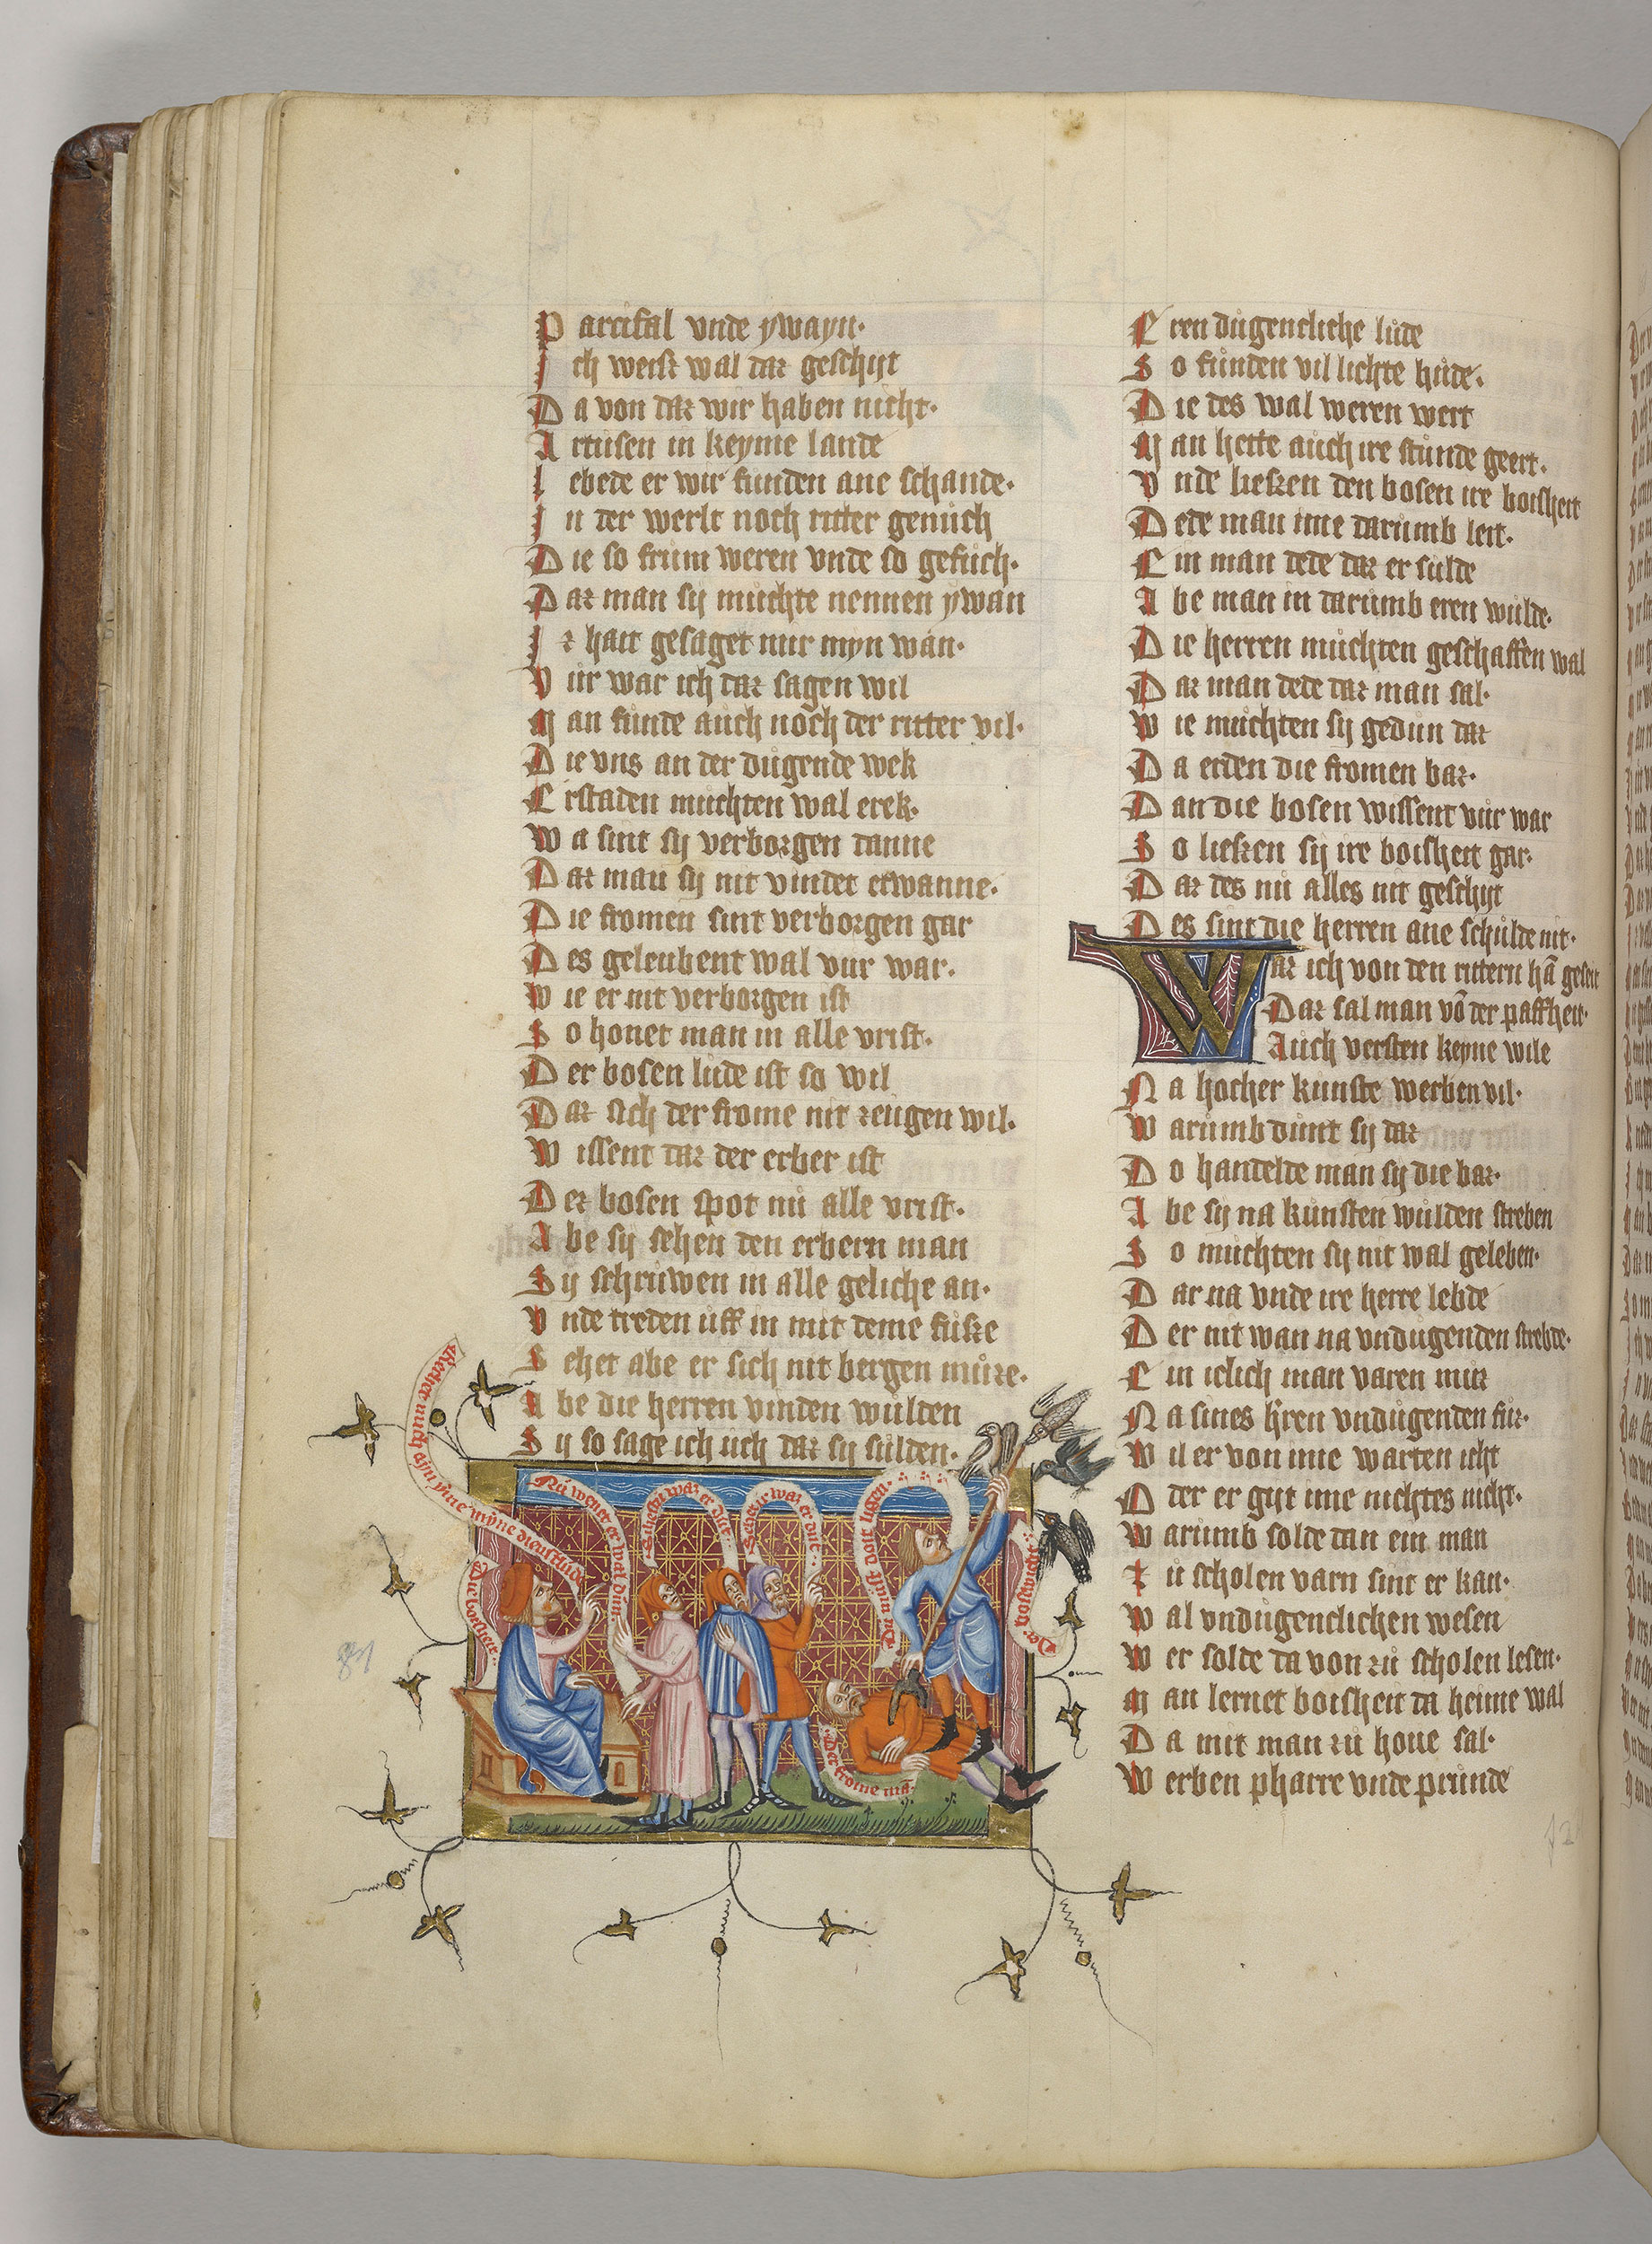 Parcifal vnde ywayn·
Ich weisz wal daz geschijt
Da von daz wir haben nicht·
Artusen in keyme lande
Lebede er wir funden ane schande·
In der werlt noch ritter genuch
Die so frum weren vnde so gefuch·
Daz man sij muchte nennen ywan
Iz hait gesaget mir myn wan·
Vur war ich daz sagen wil
Man funde auch noch der ritter vil·
Die vns an der dugende wek
Erstaden muchten wal erek·
Wa sint sij verborgen danne
Daz man sij nit vindet etwanne·
Die fromen sint verborgen gar
Des geleubent wal vur war·
Wie er nit verborgen ist
So honet man in alle vrist·
Der bosen lude ist so wil
Daz sich der frome nit zeugen wil·
Wissent daz der erber ist
Der bosen spot nu alle vrist·
Abe sij sehen den erbern man
Sij schruwen in alle geliche an·
Vnde treden uff in mit deme fusze
Sehet abe er sich nit bergen muze·
Abe die herren vinden wulden
Sij so sage ich uch daz sij sulden·
Eren dugentliche lude
So funden vil lichte hude·
Die des wal weren wert
Man hette auch ire stunde geert·
Vnde lieszen den bosen ire bosheit
Dede man ime darumb leit·
Ein man dede daz er sulde
Abe man in darumb eren wulde·
Die herren muchten geschaffen wal
Daz man dede daz man sal·
Wie muchten sij gedun daz
Da erden die fromen baz·
Dan die bosen wissent vur war
So lieszen sij ire bosheit gar·
Daz des nu alles nit geschijt
Des sint die herren ane schulde nit·
Waz ich von den rittern hā geseit
Daz sal man vō der paffheit·
Auch versten keyne wile
Na hocher kunste werben vil·
Warumb dunt sij daz
Do handelde man sij die baz·
Abe sij na kunsten wulden streben
So muchten sij nit wal geleben·
Dar na vnde ire herre lebde
Der nit wan na vndugenden strebde·
Ein iclich man varen muz
Na sines h̄ren vndugenden fuz·
Wil er von ime warten icht
Oder er gijt ime nichtes nicht·
Warumb solde dan ein man
Zu scholen varn sint er kan·
Wal vndugentlichen wesen
Wer solde da von zu scholen lesen·
Man lernet bosheit da heime wal
Da mit man zu houe sal·
Werben pharre vnde prunde
Die bosheit·
Nu wenet er wal dun·
Sehet waz er dut·
Der bosewicht·
Der frome mā·
81